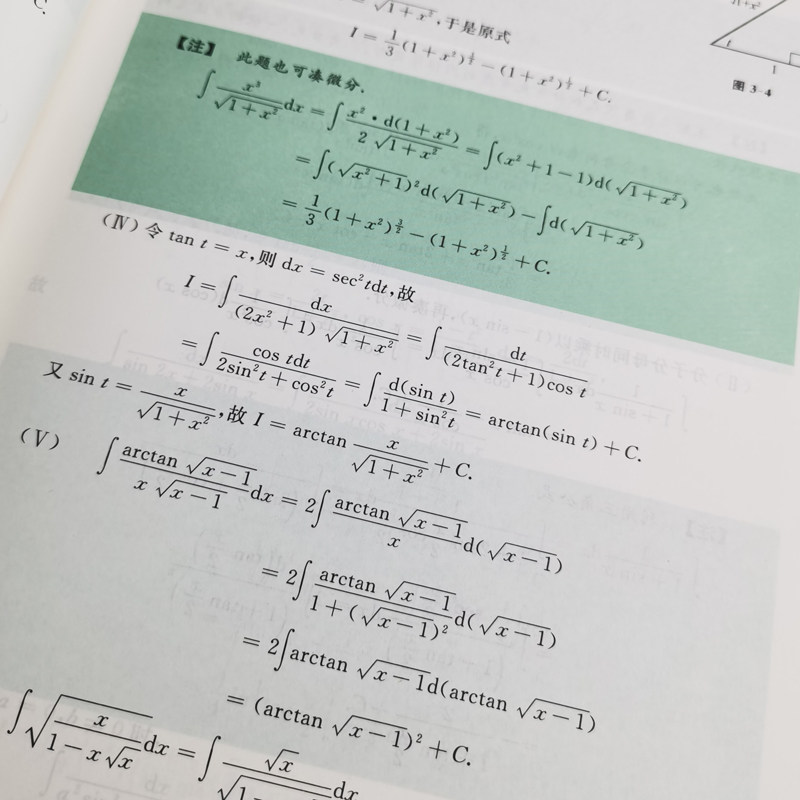 = √(1+x²),于是原式
I = 1/3(1+x²)^(3/2) − (1+x²)^(1/2) + C.
图 3-4
【注】 此题也可凑微分.
∫ x³/√(1+x²) dx = ∫ x²·d(1+x²)/(2√(1+x²)) = ∫(x²+1−1)d(√(1+x²))
= ∫(√(x²+1))²d(√(1+x²)) − ∫d(√(1+x²))
= 1/3(1+x²)^(3/2) − (1+x²)^(1/2) + C.
(Ⅳ) 令 tan t = x,则 dx = sec²tdt,故
I = ∫ dx/((2x²+1)√(1+x²)) = ∫ dt/((2tan²t+1)cos t)
= ∫ cos tdt/(2sin²t+cos²t) = ∫ d(sin t)/(1+sin²t) = arctan(sin t) + C.
又 sin t = x/√(1+x²),故 I = arctan x/√(1+x²) + C.
(Ⅴ) ∫ arctan √(x−1)/(x√(x−1)) dx = 2∫ arctan √(x−1)/x d(√(x−1))
= 2∫ arctan √(x−1)/(1+(√(x−1))²) d(√(x−1))
= 2∫arctan √(x−1)d(arctan √(x−1))
= (arctan √(x−1))² + C.
∫√(x/(1−x√x)) dx = ∫ √x/√(1− dx